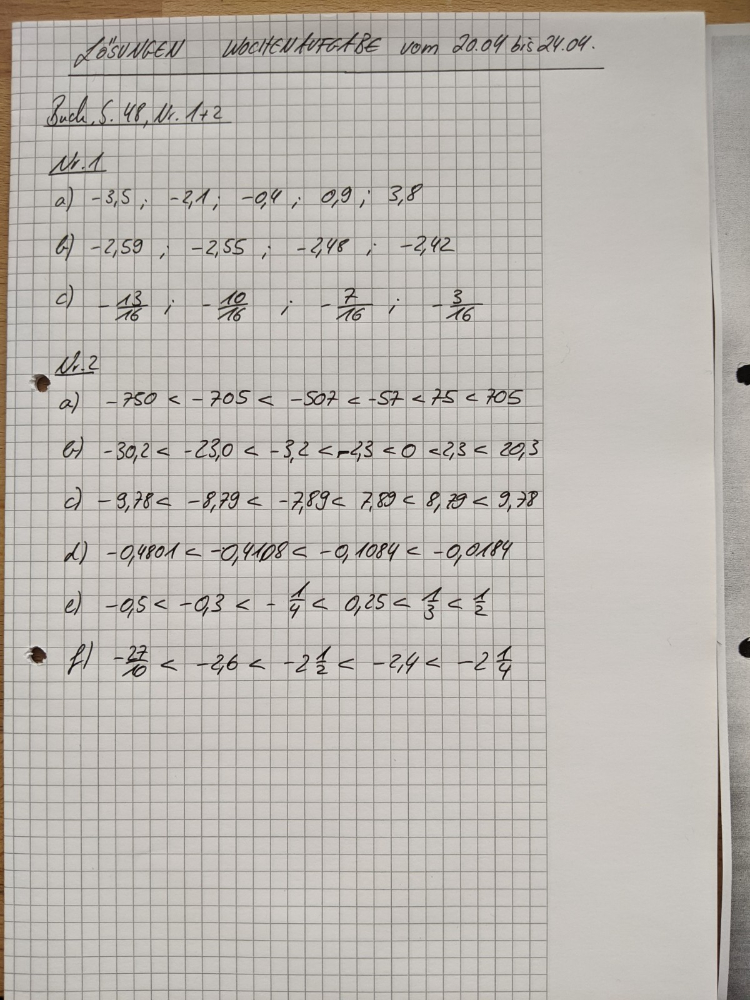 LÖSUNGEN WOCHENAUFGABE vom 20.04 bis 24.04.
Buch, S. 48, Nr. 1+2
Nr. 1
a) -3,5 ; -2,1 ; -0,4 ; 0,9 ; 3,8
b) -2,59 ; -2,55 ; -2,48 ; -2,42
c) -13/16 ; -10/16 ; -7/16 ; -3/16
Nr. 2
a) -750 < -705 < -507 < -57 < 75 < 705
b) -30,2 < -23,0 < -3,2 < -2,3 < 0 < 2,3 < 20,3
c) -9,78 < -8,79 < -7,89 < 7,89 < 8,79 < 9,78
d) -0,4801 < -0,4108 < -0,1084 < -0,0184
e) -0,5 < -0,3 < -1/4 < 0,25 < 1/3 < 1/2
f) -27/10 < -2,6 < -2 1/2 < -2,4 < -2 1/4